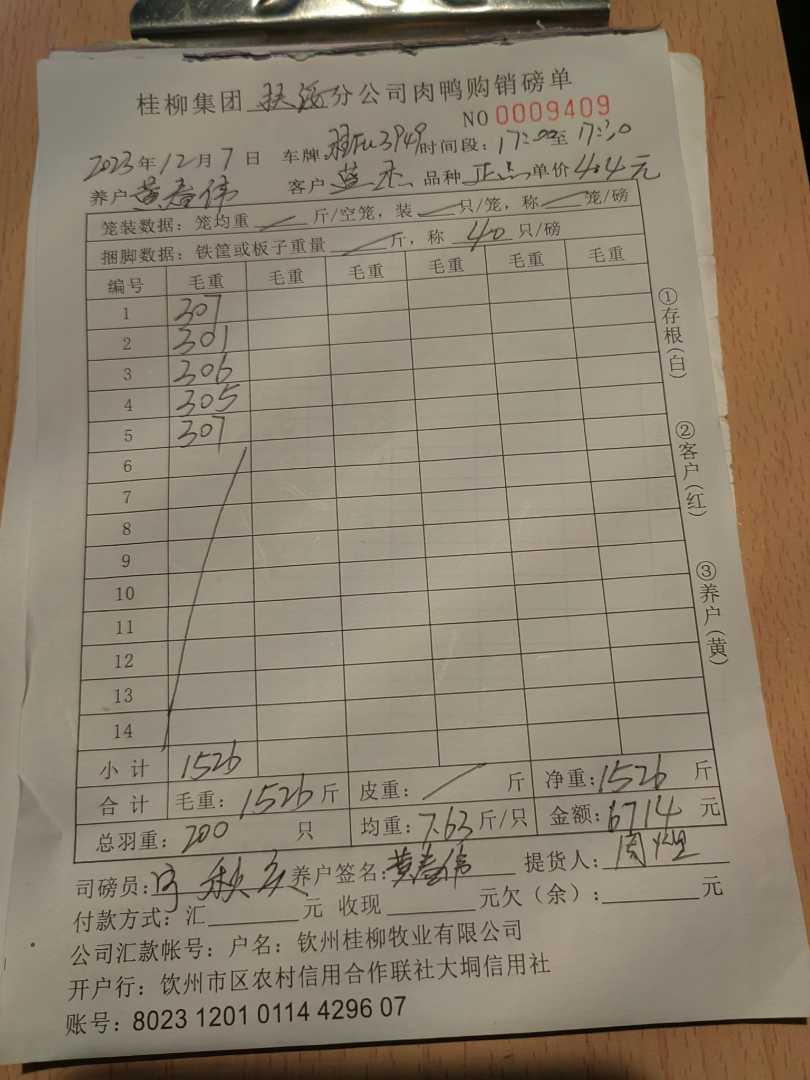 桂柳集团 分公司肉鸭购销磅单
NO 0009409
2023年12月7日 车牌 3949 时间段:17:00至17:30
养户 黄春伟 客户 蓝 品种 正 单价 4.4元
笼装数据:笼均重 / 斤/空笼,装 / 只/笼,称 / 笼/磅
捆脚数据:铁筐或板子重量 / 斤,称 40 只/磅
编号 毛重 毛重 毛重 毛重 毛重 毛重
1 307
2 301
3 306
4 305
5 307
6
7
8
9
10
11
12
13
14
小计 1526
合计 毛重:1526斤 皮重: / 斤 净重:1526斤
总羽重:200只 均重:7.63斤/只 金额:6714元
司磅员: 养户签名:黄春伟 提货人:周
付款方式:汇 元 收现 元欠(余): 元
公司汇款帐号:户名:钦州桂柳牧业有限公司
开户行:钦州市区农村信用合作联社大垌信用社
账号:8023 1201 0114 4296 07
①存根(白)
②客户(红)
③养户(黄)